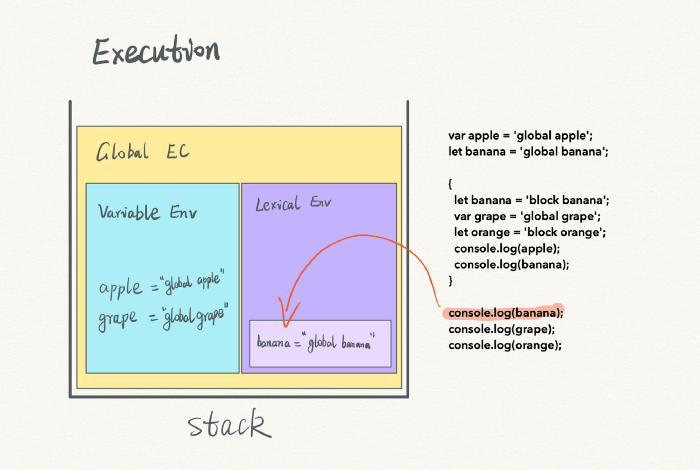 Execution
Global EC
Variable Env
apple = "global apple"
grape = "global grape"
Lexical Env
banana = "global banana"
stack
var apple = 'global apple';
let banana = 'global banana';
{
let banana = 'block banana';
var grape = 'global grape';
let orange = 'block orange';
console.log(apple);
console.log(banana);
}
console.log(banana);
console.log(grape);
console.log(orange);